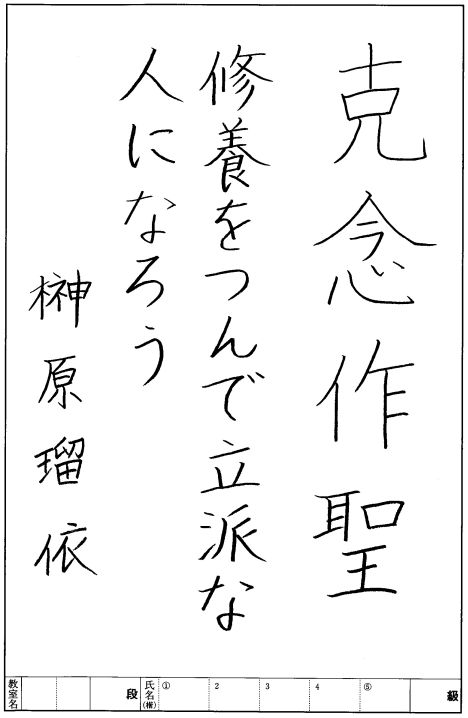 克念作聖
修養をつんで立派な
人になろう
榊原瑠依
教室名
段
氏名(権)
①
2
3
4
⑤
級